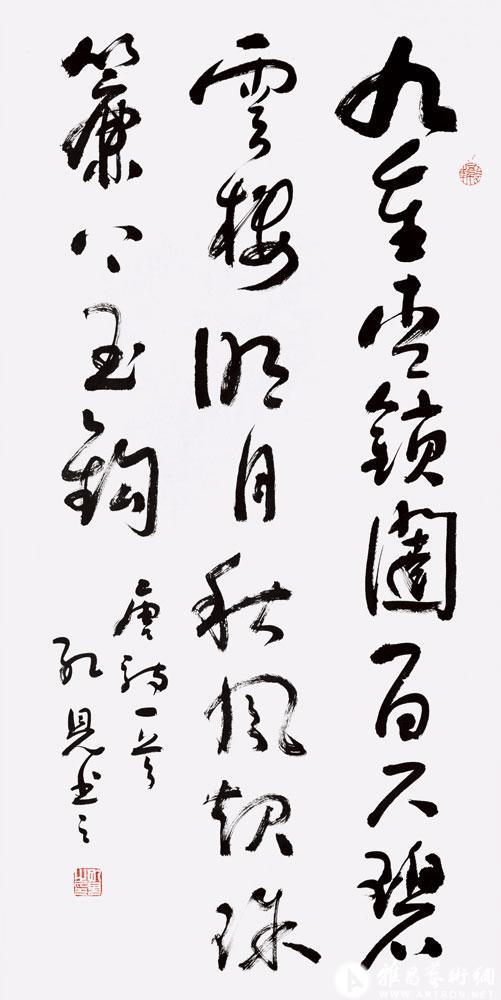 九重青鎖闥百尺碧
雲樓明月秋風起珠
簾上玉鉤
唐詩一首
孔見書之
雅昌藝術網
WWW.ARTRON.NET